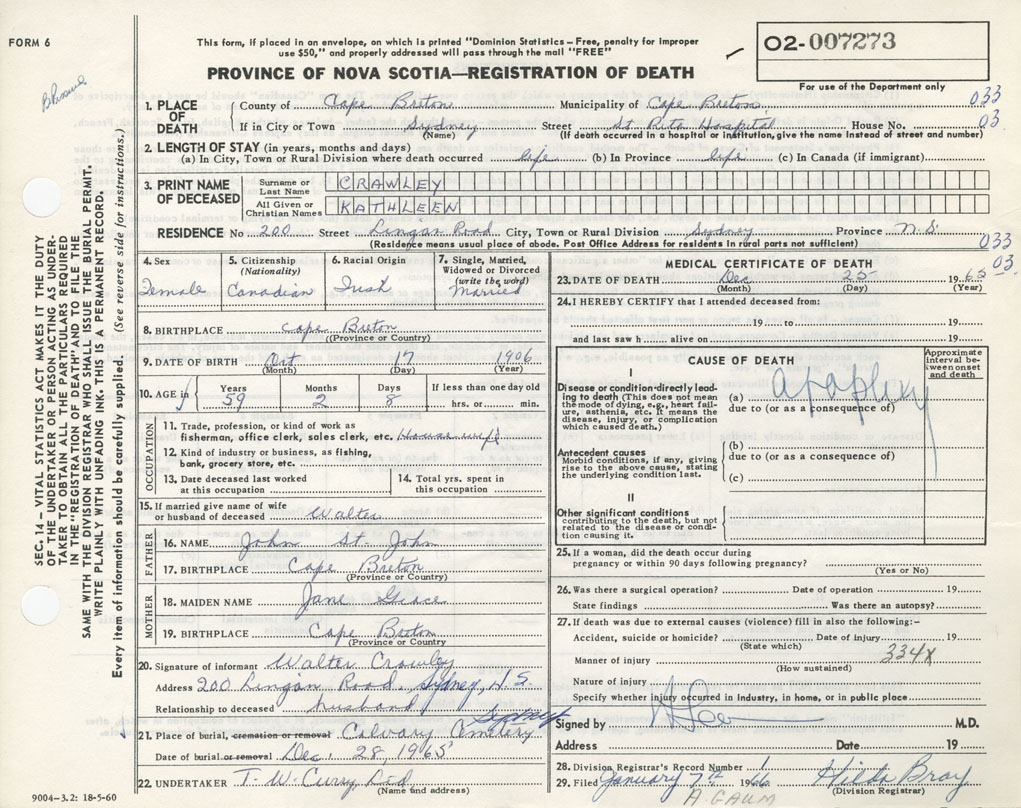 FORM 6
This form, if placed in an envelope, on which is printed "Dominion Statistics – Free, penalty for improper
use $50," and properly addressed will pass through the mail "FREE"
02-007273
PROVINCE OF NOVA SCOTIA—REGISTRATION OF DEATH
For use of the Department only
1. PLACE OF DEATH County of Cape Breton Municipality of Cape Breton 033
If in City or Town Sydney Street St Rita Hospital House No. 03
(Name) (If death occurred in a hospital or institution, give the name instead of street and number)
2. LENGTH OF STAY (in years, months and days)
(a) In City, Town or Rural Division where death occurred life (b) In Province life (c) In Canada (if immigrant)
3. PRINT NAME OF DECEASED Surname or Last Name CRAWLEY
All Given or Christian Names KATHLEEN
RESIDENCE No 200 Street Lingan Road City, Town or Rural Division Sydney Province N.S. 033
(Residence means usual place of abode. Post Office Address for residents in rural parts not sufficient) 03
4. Sex Female
5. Citizenship (Nationality) Canadian
6. Racial Origin Irish
7. Single, Married, Widowed or Divorced (write the word) Married
8. BIRTHPLACE Cape Breton
((Province or Country)
9. DATE OF BIRTH Oct 17 1906
(Month) (Day) (Year)
10. AGE in Years 59 Months 2 Days 8 If less than one day old hrs. or min.
OCCUPATION
11. Trade, profession, or kind of work as
fisherman, office clerk, sales clerk, etc. Housewife
12. Kind of industry or business, as fishing,
bank, grocery store, etc.
13. Date deceased last worked
at this occupation
14. Total yrs. spent in
this occupation
15. If married give name of wife
or husband of deceased Walter
FATHER
16. NAME John St. John
17. BIRTHPLACE Cape Breton
(Province or Country)
MOTHER
18. MAIDEN NAME Jane Grace
19. BIRTHPLACE Cape Breton
(Province or Country)
20. Signature of informant Walter Crawley
Address 200 Lingan Road, Sydney, N.S.
Relationship to deceased husband
21. Place of burial, cremation or removal Calvary Cemetery Sydney
Date of burial or removal Dec. 28, 1965
22. UNDERTAKER T. W. Curry Ltd
(Name and address)
9004–3.2: 18-5-60
MEDICAL CERTIFICATE OF DEATH
23. DATE OF DEATH Dec 25 1965
(Month) (Day) (Year)
24. I HEREBY CERTIFY that I attended deceased from:
19 to 19
and last saw h alive on 19
CAUSE OF DEATH
Approximate interval between onset and death
I
Disease or condition directly leading
to death (This does not mean
the mode of dying, e.g., heart failure,
asthenia, etc. It means the
disease, injury, or complication
which caused death.)
(a) apoplexy
due to (or as a consequence of)
Antecedent causes
Morbid conditions, if any, giving
rise to the above cause, stating
the underlying condition last.
(b)
due to (or as a consequence of)
(c)
II
Other significant conditions
contributing to the death, but not
related to the disease or condition
causing it.
25. If a woman, did the death occur during
pregnancy or within 90 days following pregnancy?
(Yes or No)
26. Was there a surgical operation? Date of operation 19
State findings Was there an autopsy?
27. If death was due to external causes (violence) fill in also the following:-
Accident, suicide or homicide? Date of injury 19
(State which)
Manner of injury 334X
(How sustained)
Nature of injury
Specify whether injury occurred in Industry, in home, or in public place
Signed by M.D.
Address Date 19
28. Division Registrar's Record Number 1
29. Filed January 7th 1966 Hilda Bray
(Division Registrar)
A. GAUM
SEC. 14 – VITAL STATISTICS ACT MAKES IT THE DUTY
OF THE UNDERTAKER OR PERSON ACTING AS UNDER-
TAKER TO OBTAIN ALL THE PARTICULARS REQUIRED
IN THE "REGISTRATION OF DEATH" AND TO FILE THE
SAME WITH THE DIVISION REGISTRAR WHO SHALL ISSUE THE BURIAL PERMIT.
WRITE PLAINLY WITH UNFADING INK. THIS IS A PERMANENT RECORD.
Every item of information should be carefully supplied. (See reverse side for instructions.)